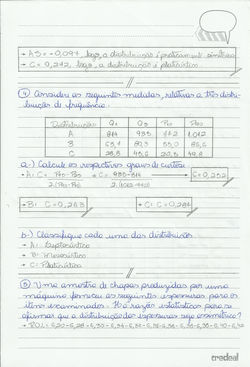 → AS = -0,097, logo, a distribuição é praticamente simétrica
→ C = 0,242, logo, a distribuição é platicúrtica
④ Considere as seguintes medidas, relativas a três distri-
buições de frequência:
Distribuições Q₁ Q₃ P₁₀ P₉₀
A 814 935 772 1.012
B 63,1 80,3 55,0 86,6
C 28,8 45,6 20,5 49,8
a-) Calcule os respectivos graus de curtose
→ A: C = C = 935-814 C = 0,252
→ B: C = 0,263 → C: C = 0,287
b-) Classifique cada uma das distribuições
→ A: Leptocúrtica
→ B: Mesocúrtica
→ C: Platicúrtica
⑤ Uma amostra de chapas produzidas por uma
máquina forneceu as seguintes espessuras, para os
itens examinados. Há razão estatística para se
afirmar que a distribuição das espessuras seja assimétrica?
credeal